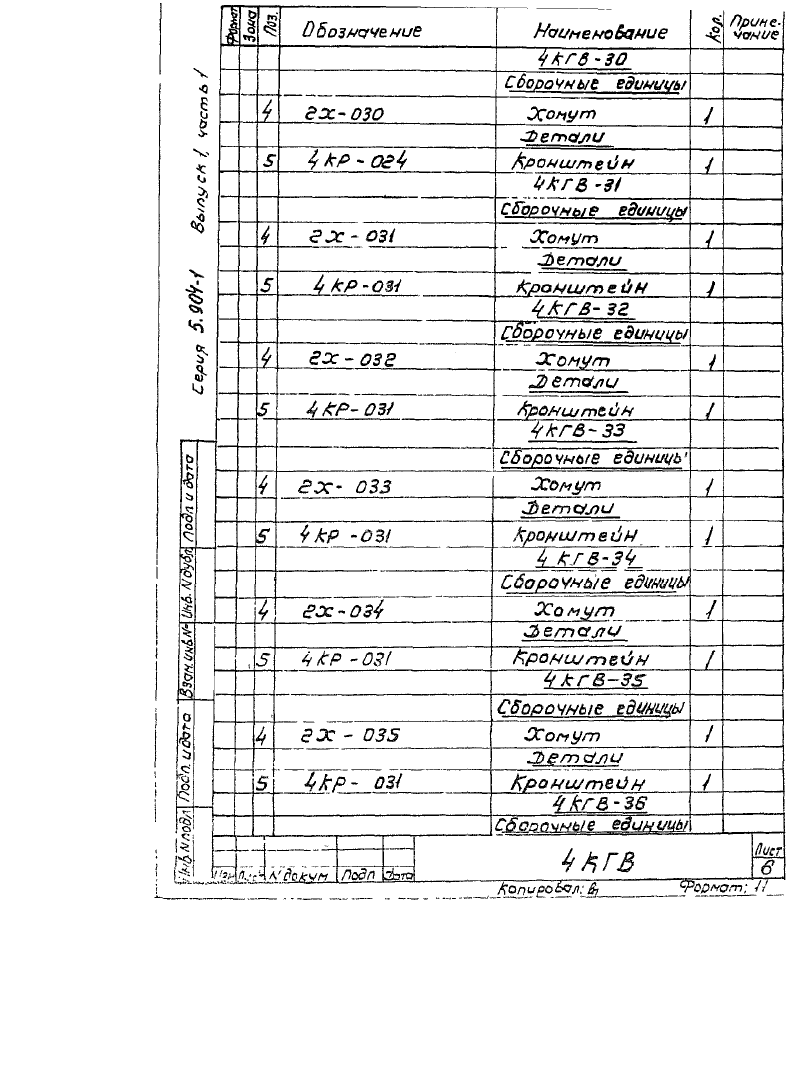 Формат Зона Поз. Обозначение Наименование Кол. Приме-чание
4КГВ-30
Сборочные единицы
4 2Х-030 Хомут 1
Детали
5 4КР-024 Кронштейн 1
4КГВ-31
Сборочные единицы
4 2Х-031 Хомут 1
Детали
5 4КР-031 Кронштейн 1
4КГВ-32
Сборочные единицы
4 2Х-032 Хомут 1
Детали
5 4КР-031 Кронштейн 1
4КГВ-33
Сборочные единицы
4 2Х-033 Хомут 1
Детали
5 4КР-031 Кронштейн 1
4КГВ-34
Сборочные единицы
4 2Х-034 Хомут 1
Детали
5 4КР-031 Кронштейн 1
4КГВ-35
Сборочные единицы
4 2Х-035 Хомут 1
Детали
5 4КР-031 Кронштейн 1
4КГВ-36
Сборочные единицы
Серия 5.904-1 Выпуск 1, часть 1
Инв. N подл Подп. и дата Взам. инв. № Инв. N дубл. Подп и дата
Изм Лист N докум Подп Дата
4КГВ
Лист
6
Копировал:
Формат: 11